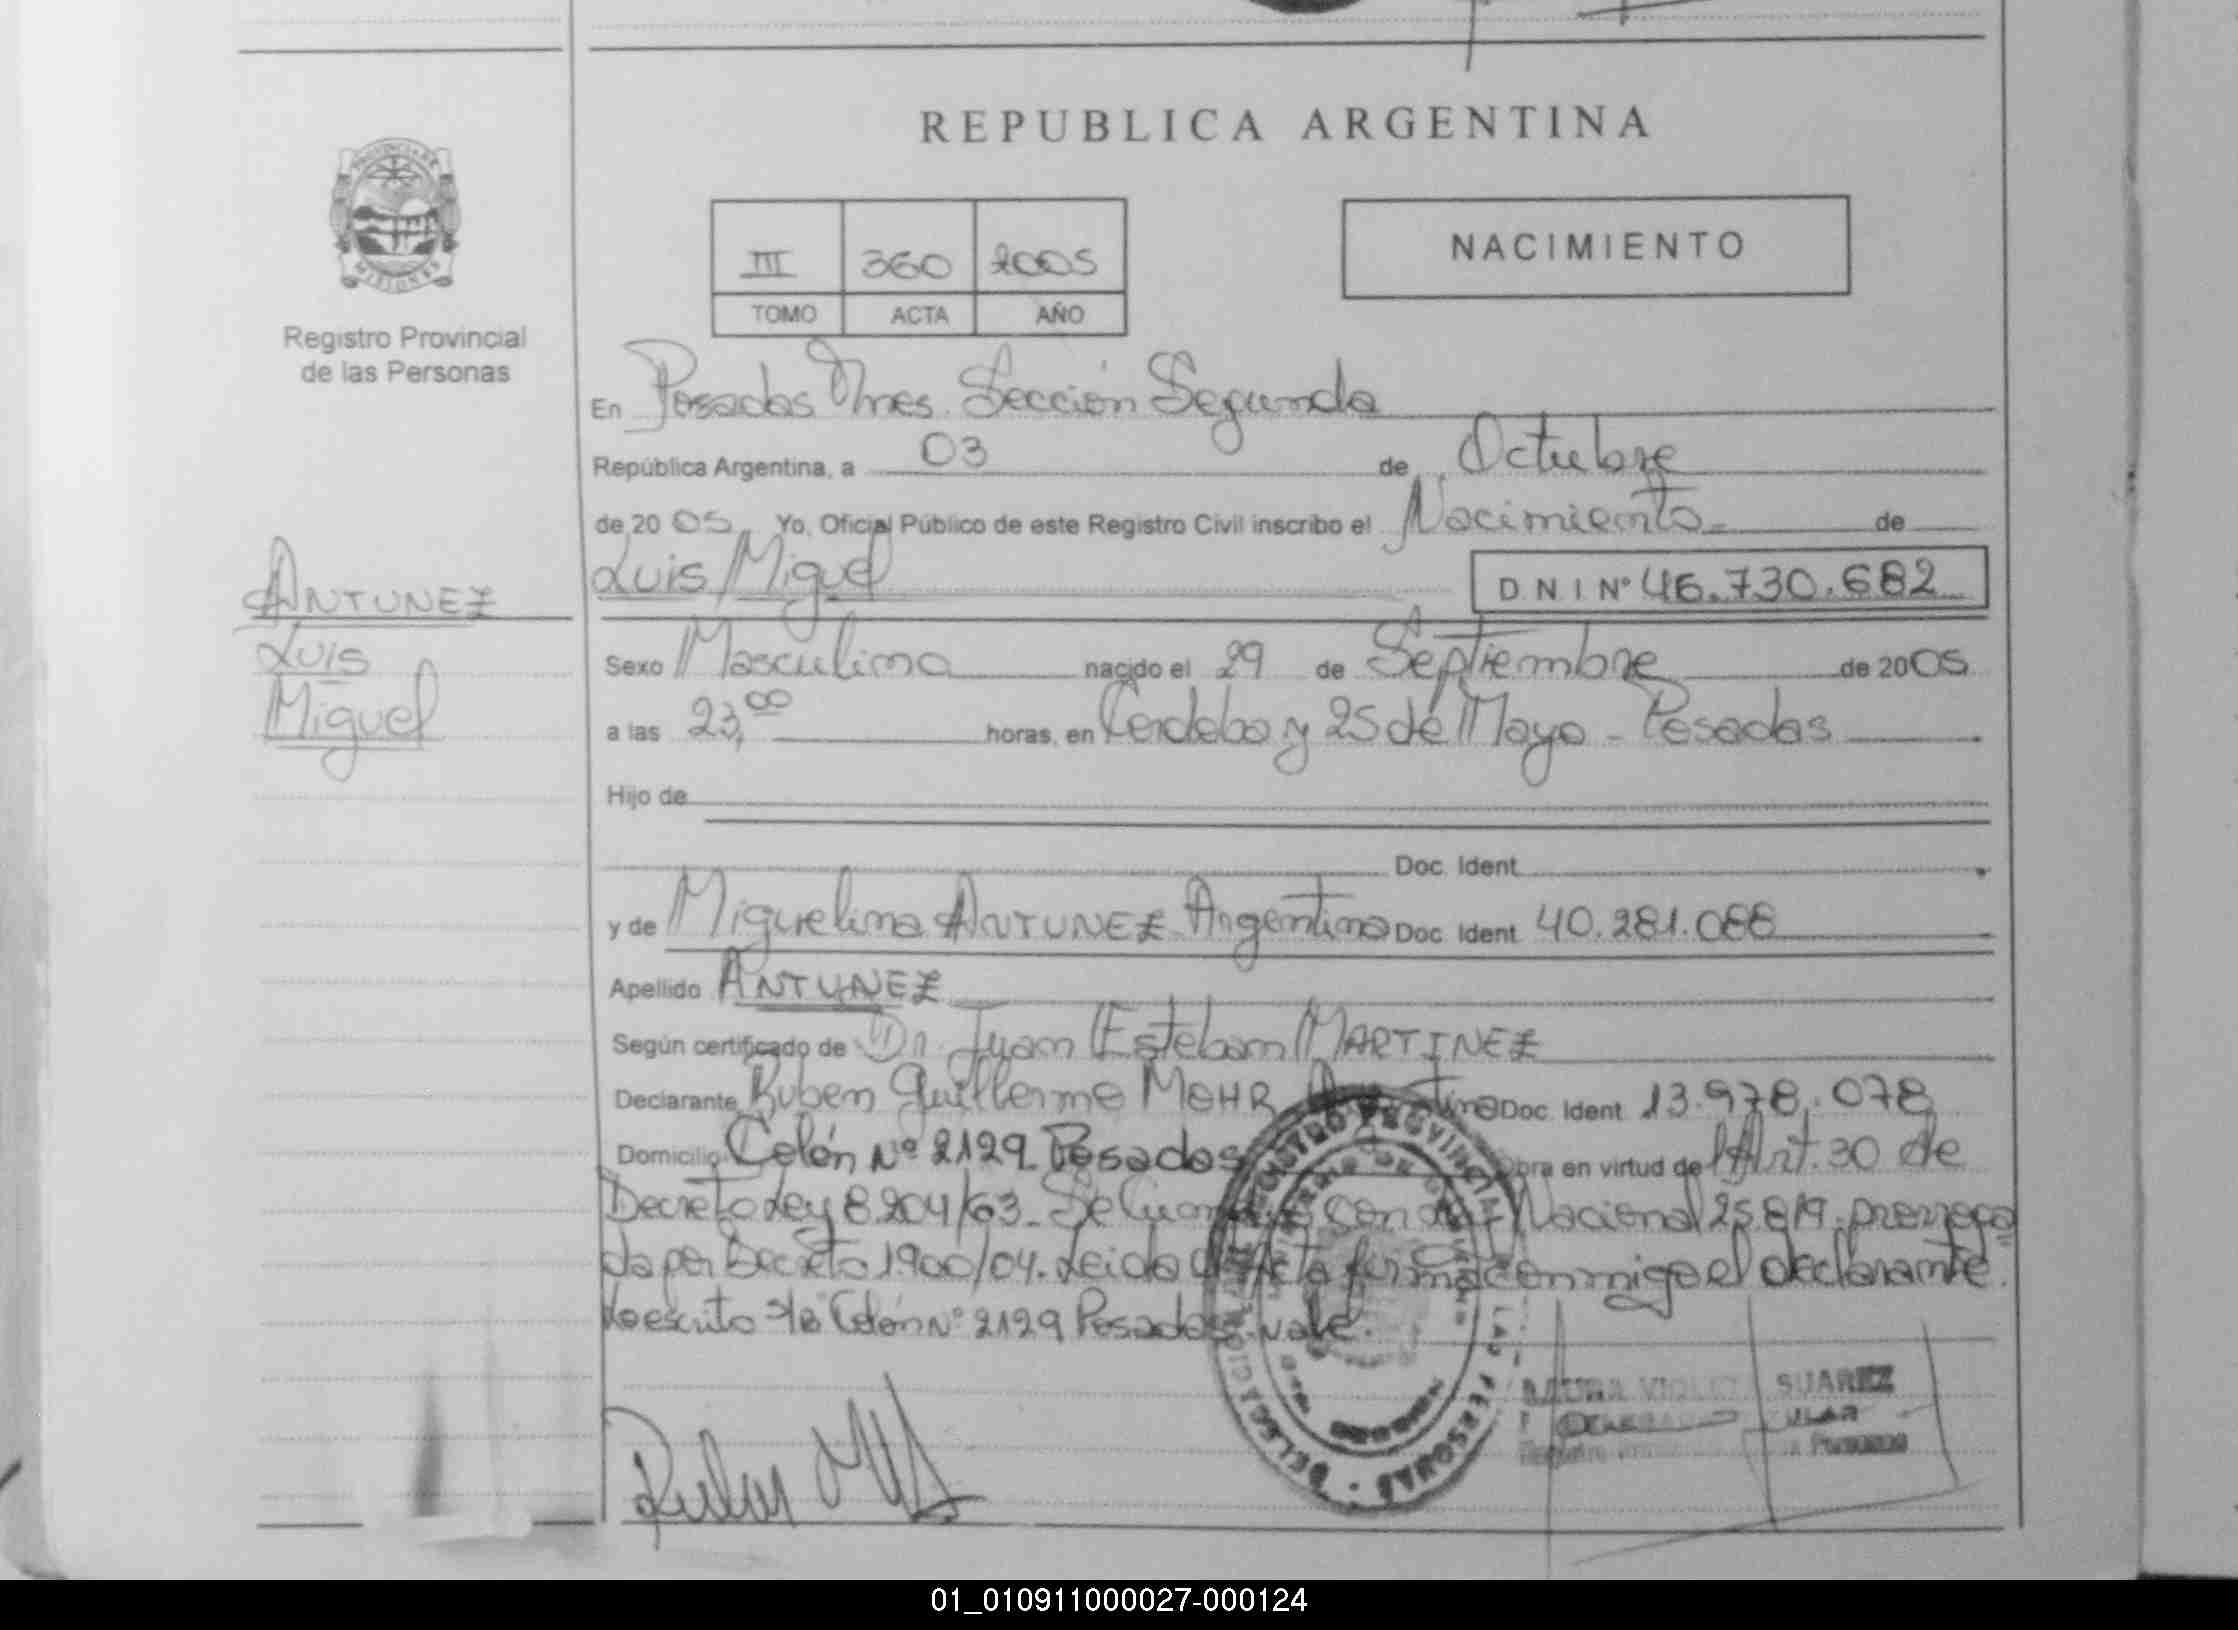 REPUBLICA ARGENTINA
PROVINCIA DE
MISIONES
Registro Provincial
de las Personas
III 360 2005
TOMO ACTA AÑO
NACIMIENTO
En Posadas Mnes. Sección Segunda
República Argentina, a 03 de Octubre
de 2005 Yo, Oficial Público de este Registro Civil inscribo el Nacimiento de
Luis Miguel
DNI Nº 46.730.682
ANTUNEZ
Luis
Miguel
Sexo Masculino nacido el 29 de Septiembre de 2005
a las 23,00 horas, en Cordoba y 25 de Mayo - Posadas
Hijo de
Doc. Ident
y de Miguelina ANTUNEZ Argentina Doc. Ident 40.281.088
Apellido ANTUNEZ
Según certificado de Dr. Juan Esteban MARTINEZ
Declarante Ruben Guillermo MOHR Doc. Ident 13.978.078
Domicilio Colón Nº 2129 Posadas Obra en virtud de Art. 30 de
Decreto Ley 8.204/63. con Nacional 25.819. prorroga
da por Decreto 1.900/04. Leida Acta firma conmigo el declarante.
Lo escrito s/b Colón Nº 2129 Posadas. vale.
REGISTRO PROVINCIAL DE LAS PERSONAS
SUAREZ
01_010911000027-000124